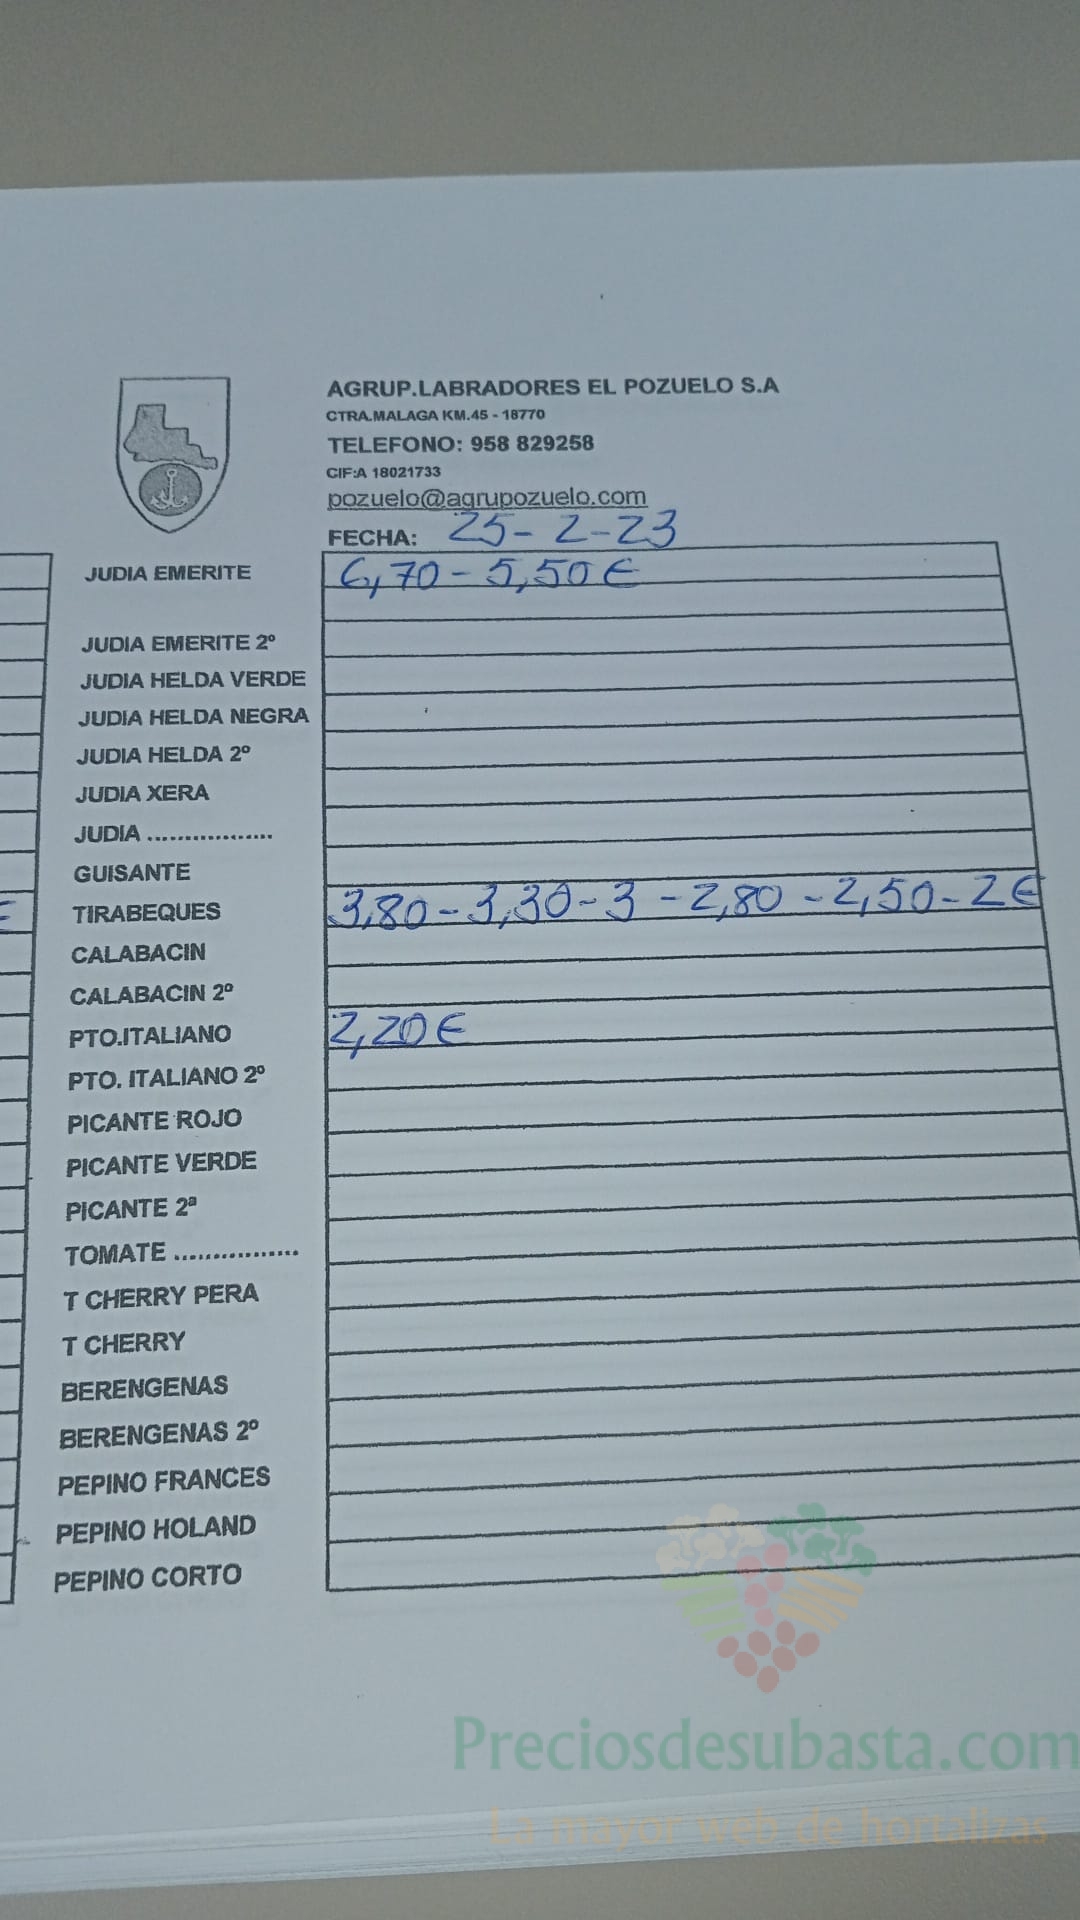 AGRUP.LABRADORES EL POZUELO S.A
CTRA.MALAGA KM.45 - 18770
TELEFONO: 958 829258
CIF:A 18021733
pozuelo@agrupozuelo.com
FECHA: 25-2-23
JUDIA EMERITE 6,70-5,50€
JUDIA EMERITE 2º
JUDIA HELDA VERDE
JUDIA HELDA NEGRA
JUDIA HELDA 2º
JUDIA XERA
JUDIA .................
GUISANTE
TIRABEQUES 3,80-3,30-3-2,80-2,50-2€
CALABACIN
CALABACIN 2º
PTO.ITALIANO 2,20€
PTO. ITALIANO 2º
PICANTE ROJO
PICANTE VERDE
PICANTE 2ª
TOMATE ................
T CHERRY PERA
T CHERRY
BERENGENAS
BERENGENAS 2º
PEPINO FRANCES
PEPINO HOLAND
PEPINO CORTO
Preciosdesubasta.com
La mayor web de hortalizas